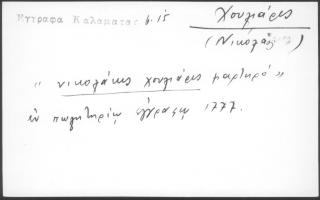 Έγγραφα Καλαμάτας 6.15
Χουλιάρες
(Νικόλαος)
"νικολάκις χουλιάρες μαρτηρό"
ἐν πωλητηρίῳ ἐγγράφῳ 1777.